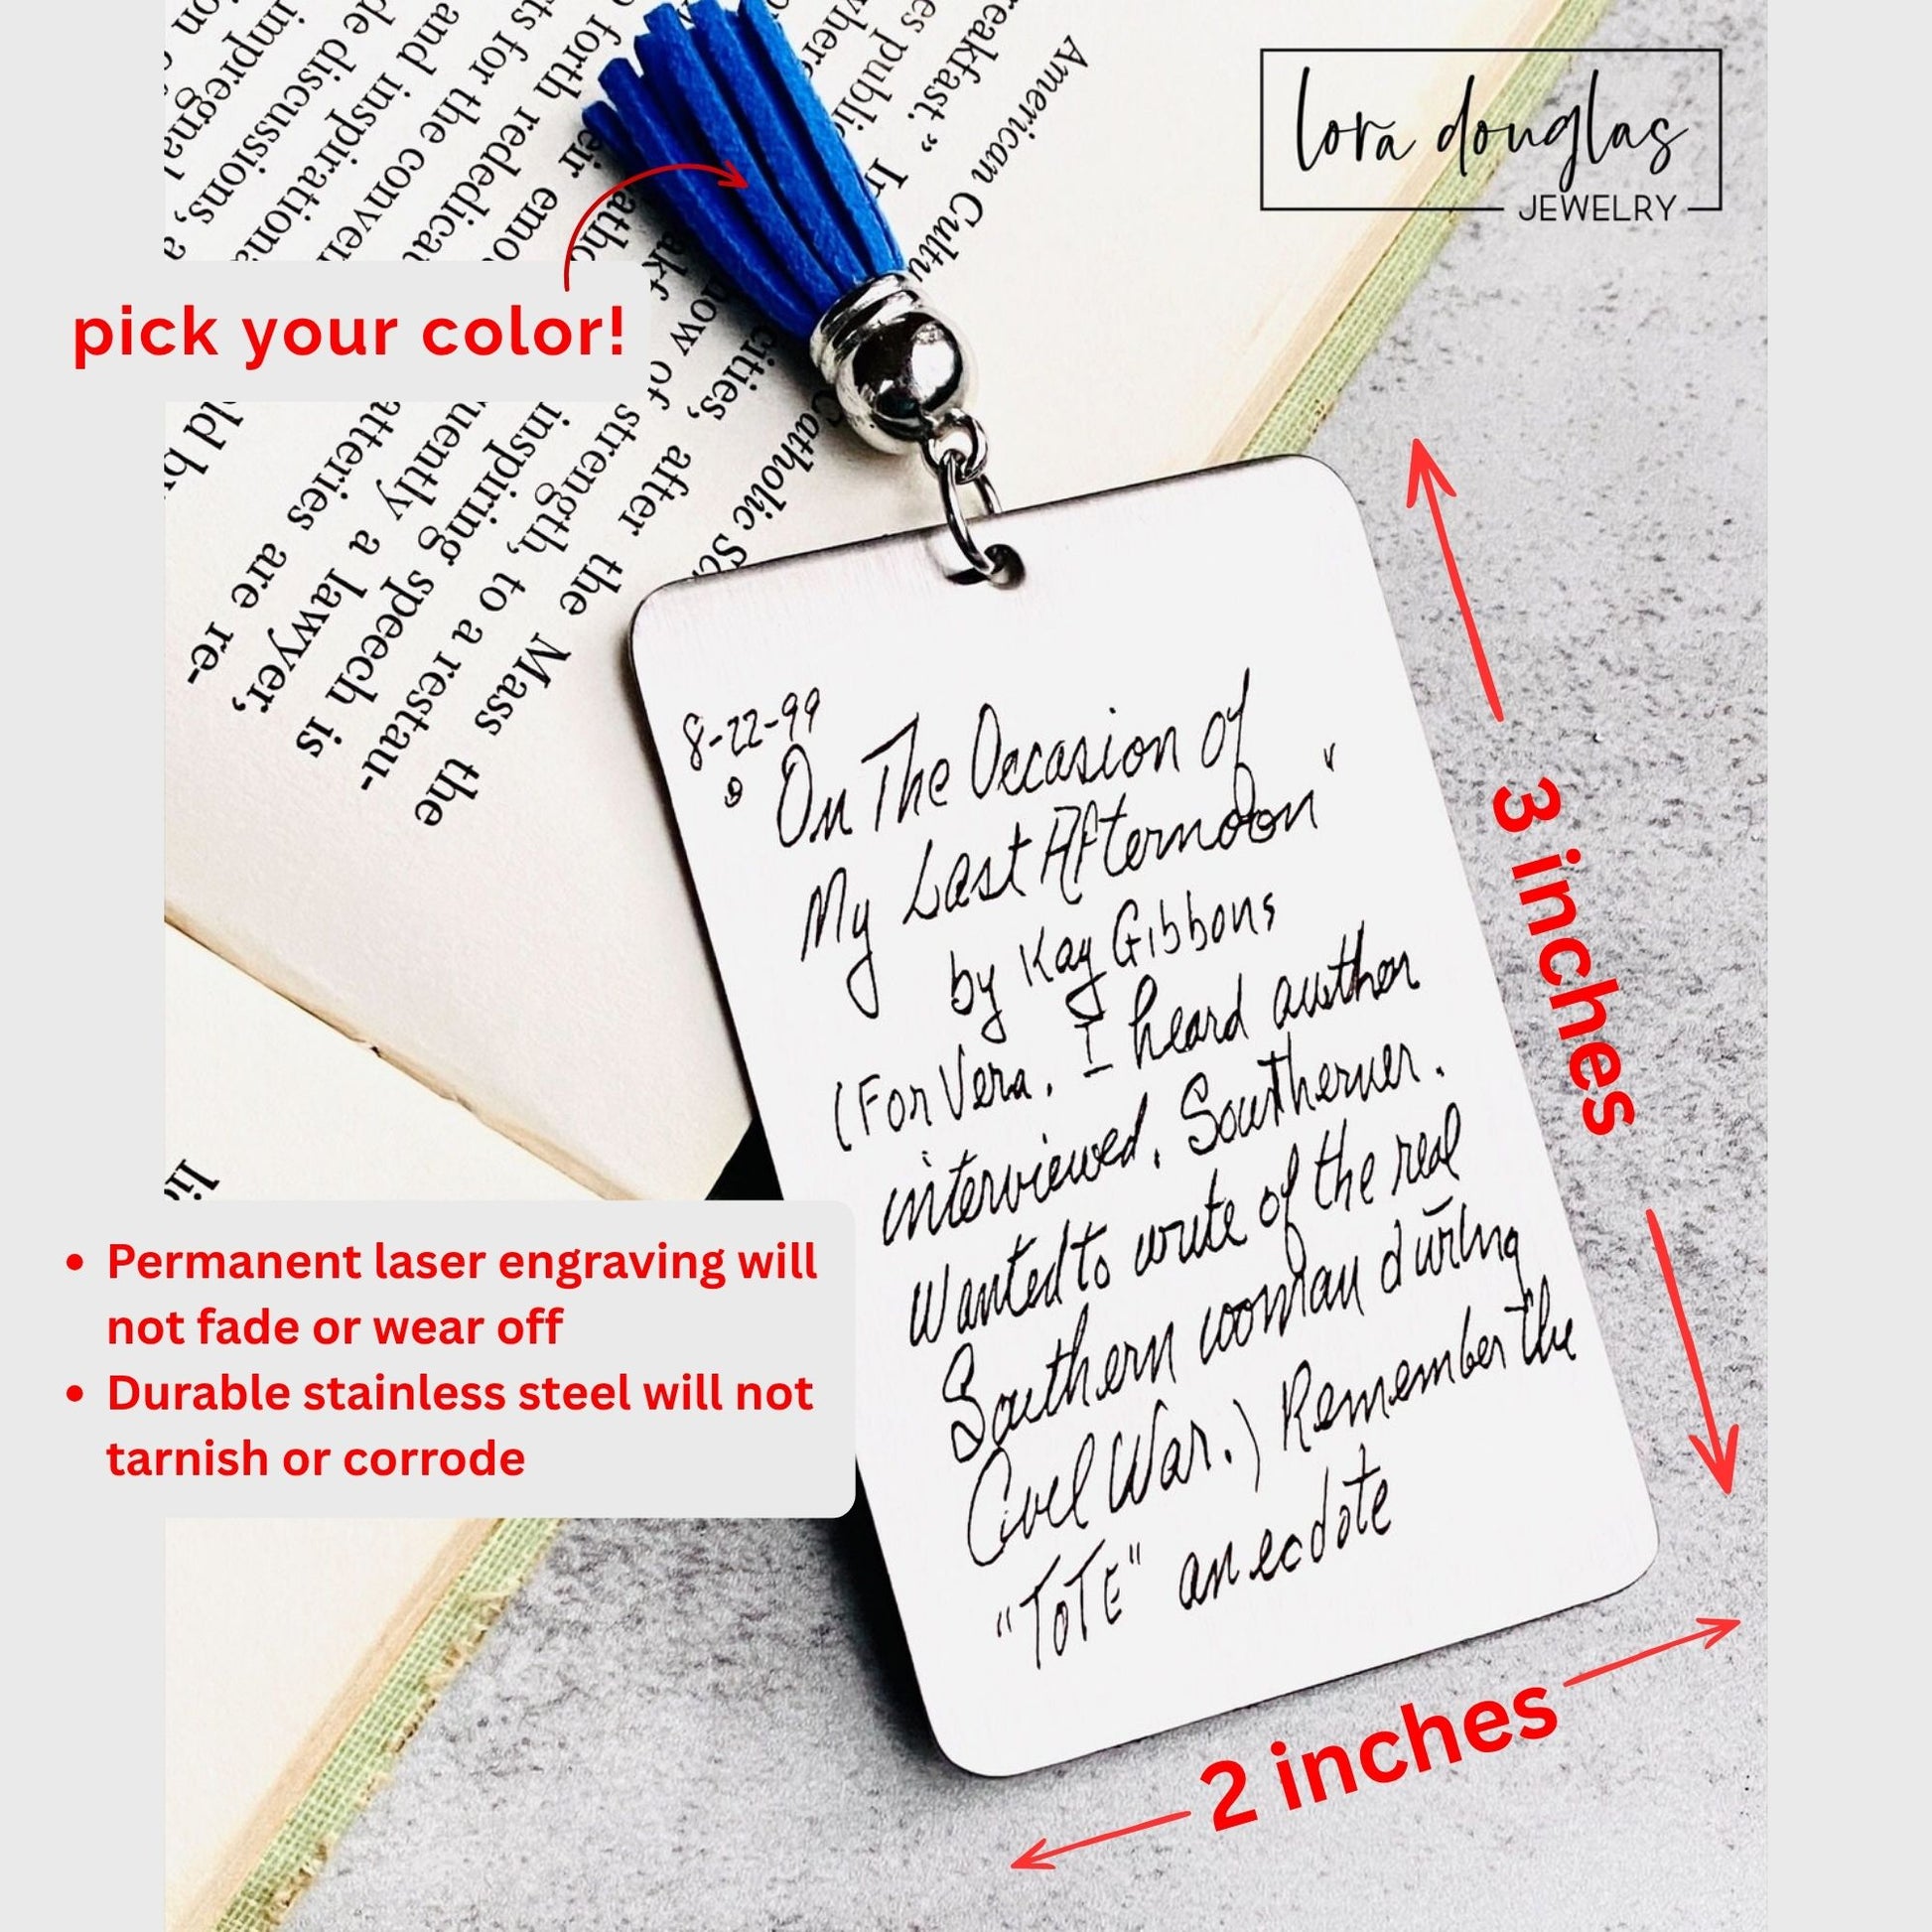 lora douglas
JEWELRY
pick your color!
American Cultu
eakfast," In
the Mass the
after
strength, to a restau-
inspiring speech is
uently a lawyer,
atteries are re-
Catholic Sc
cities,
now of
and inspirationa
de discussions, a
impregna
8-22-99
On The Occasion of
My Last Afternoon"
by Kay Gibbons
(For Vera. I heard author
interviewed. Southerner.
Wanted to write of the real
Southern woman during
Civel War.) Remember the
"ToTE" anecdote
3 inches
2 inches
• Permanent laser engraving will
not fade or wear off
• Durable stainless steel will not
tarnish or corrode